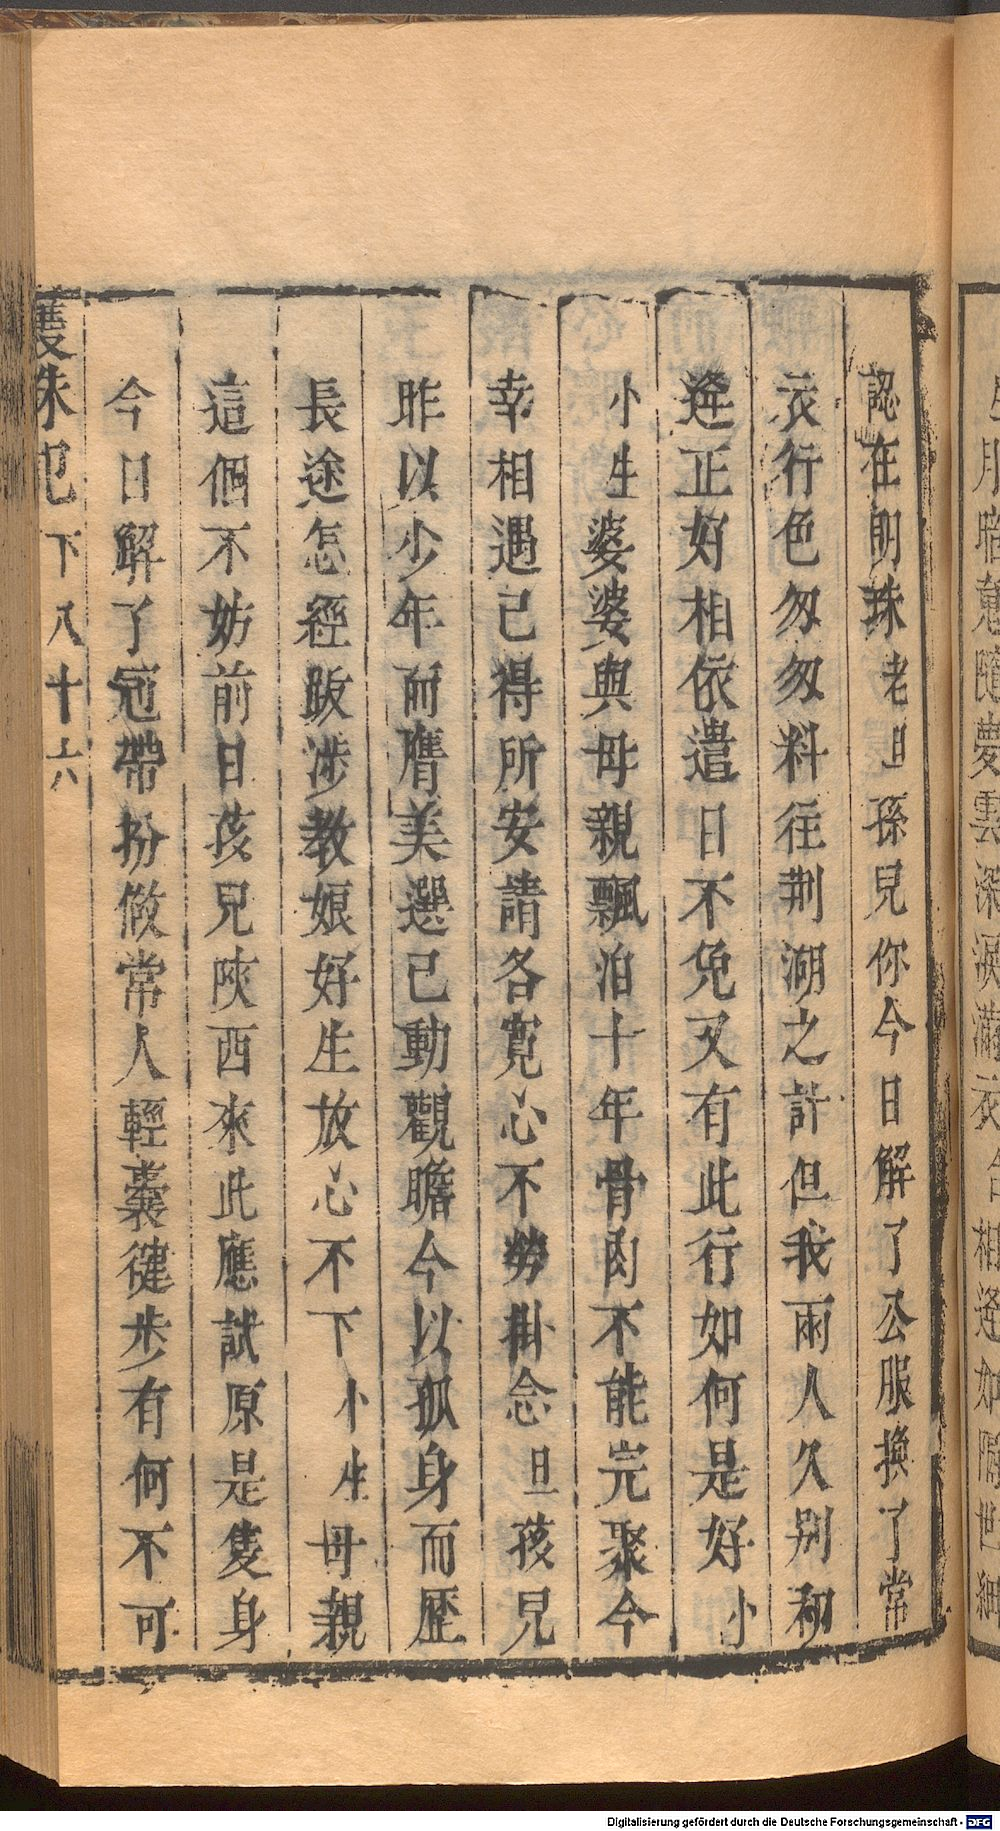 認在朙珠老旦孫兒你今日解了公服換了常
衣行色匆匆料往荆湖之計但我兩人久別初
逄正好相依遣日不免又有此行如何是好小
小生婆婆與母親飄泊十年骨肉不能完聚今
幸相遇已得所安請各寬心不勞掛念旦孩兒
昨以少年而膺美選已動觀瞻今以孤身而歷
長途怎經跋涉教娘好生放心不下小生母親
這個不妨前日孩兒陝西來此應試原是隻身
今日解了冠帶扮做常人輕囊健步有何不可
雙珠記下八十六
Digitalisierung gefördert durch die Deutsche Forschungsgemeinschaft - DFG